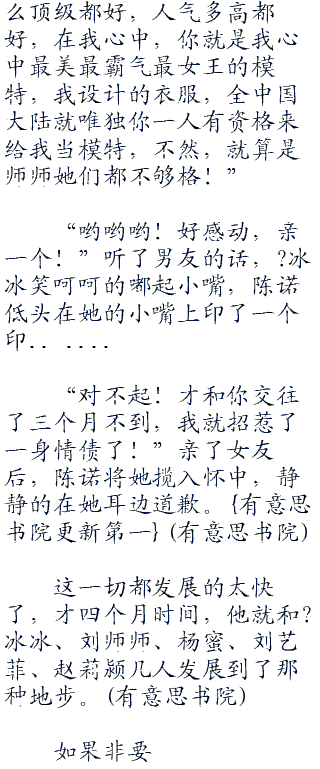 么顶级都好，人气多高都
好，在我心中，你就是我心
中最美最霸气最女王的模
特，我设计的衣服，全中国
大陆就唯独你一人有资格来
给我当模特，不然，就算是
师师她们都不够格！”
“哟哟哟！好感动，亲
一个！”听了男友的话，?冰
冰笑呵呵的嘟起小嘴，陈诺
低头在她的小嘴上印了一个
印.. ....
“对不起！才和你交往
了三个月不到，我就招惹了
一身情债了！”亲了女友
后，陈诺将她揽入怀中，静
静的在她耳边道歉。{有意思
书院更新第一} (有意思书院)
这一切都发展的太快
了，才四个月时间，他就和?
冰冰、刘师师、杨蜜、刘艺
菲、赵莉颍几人发展到了那
种地步。(有意思书院)
如果非要